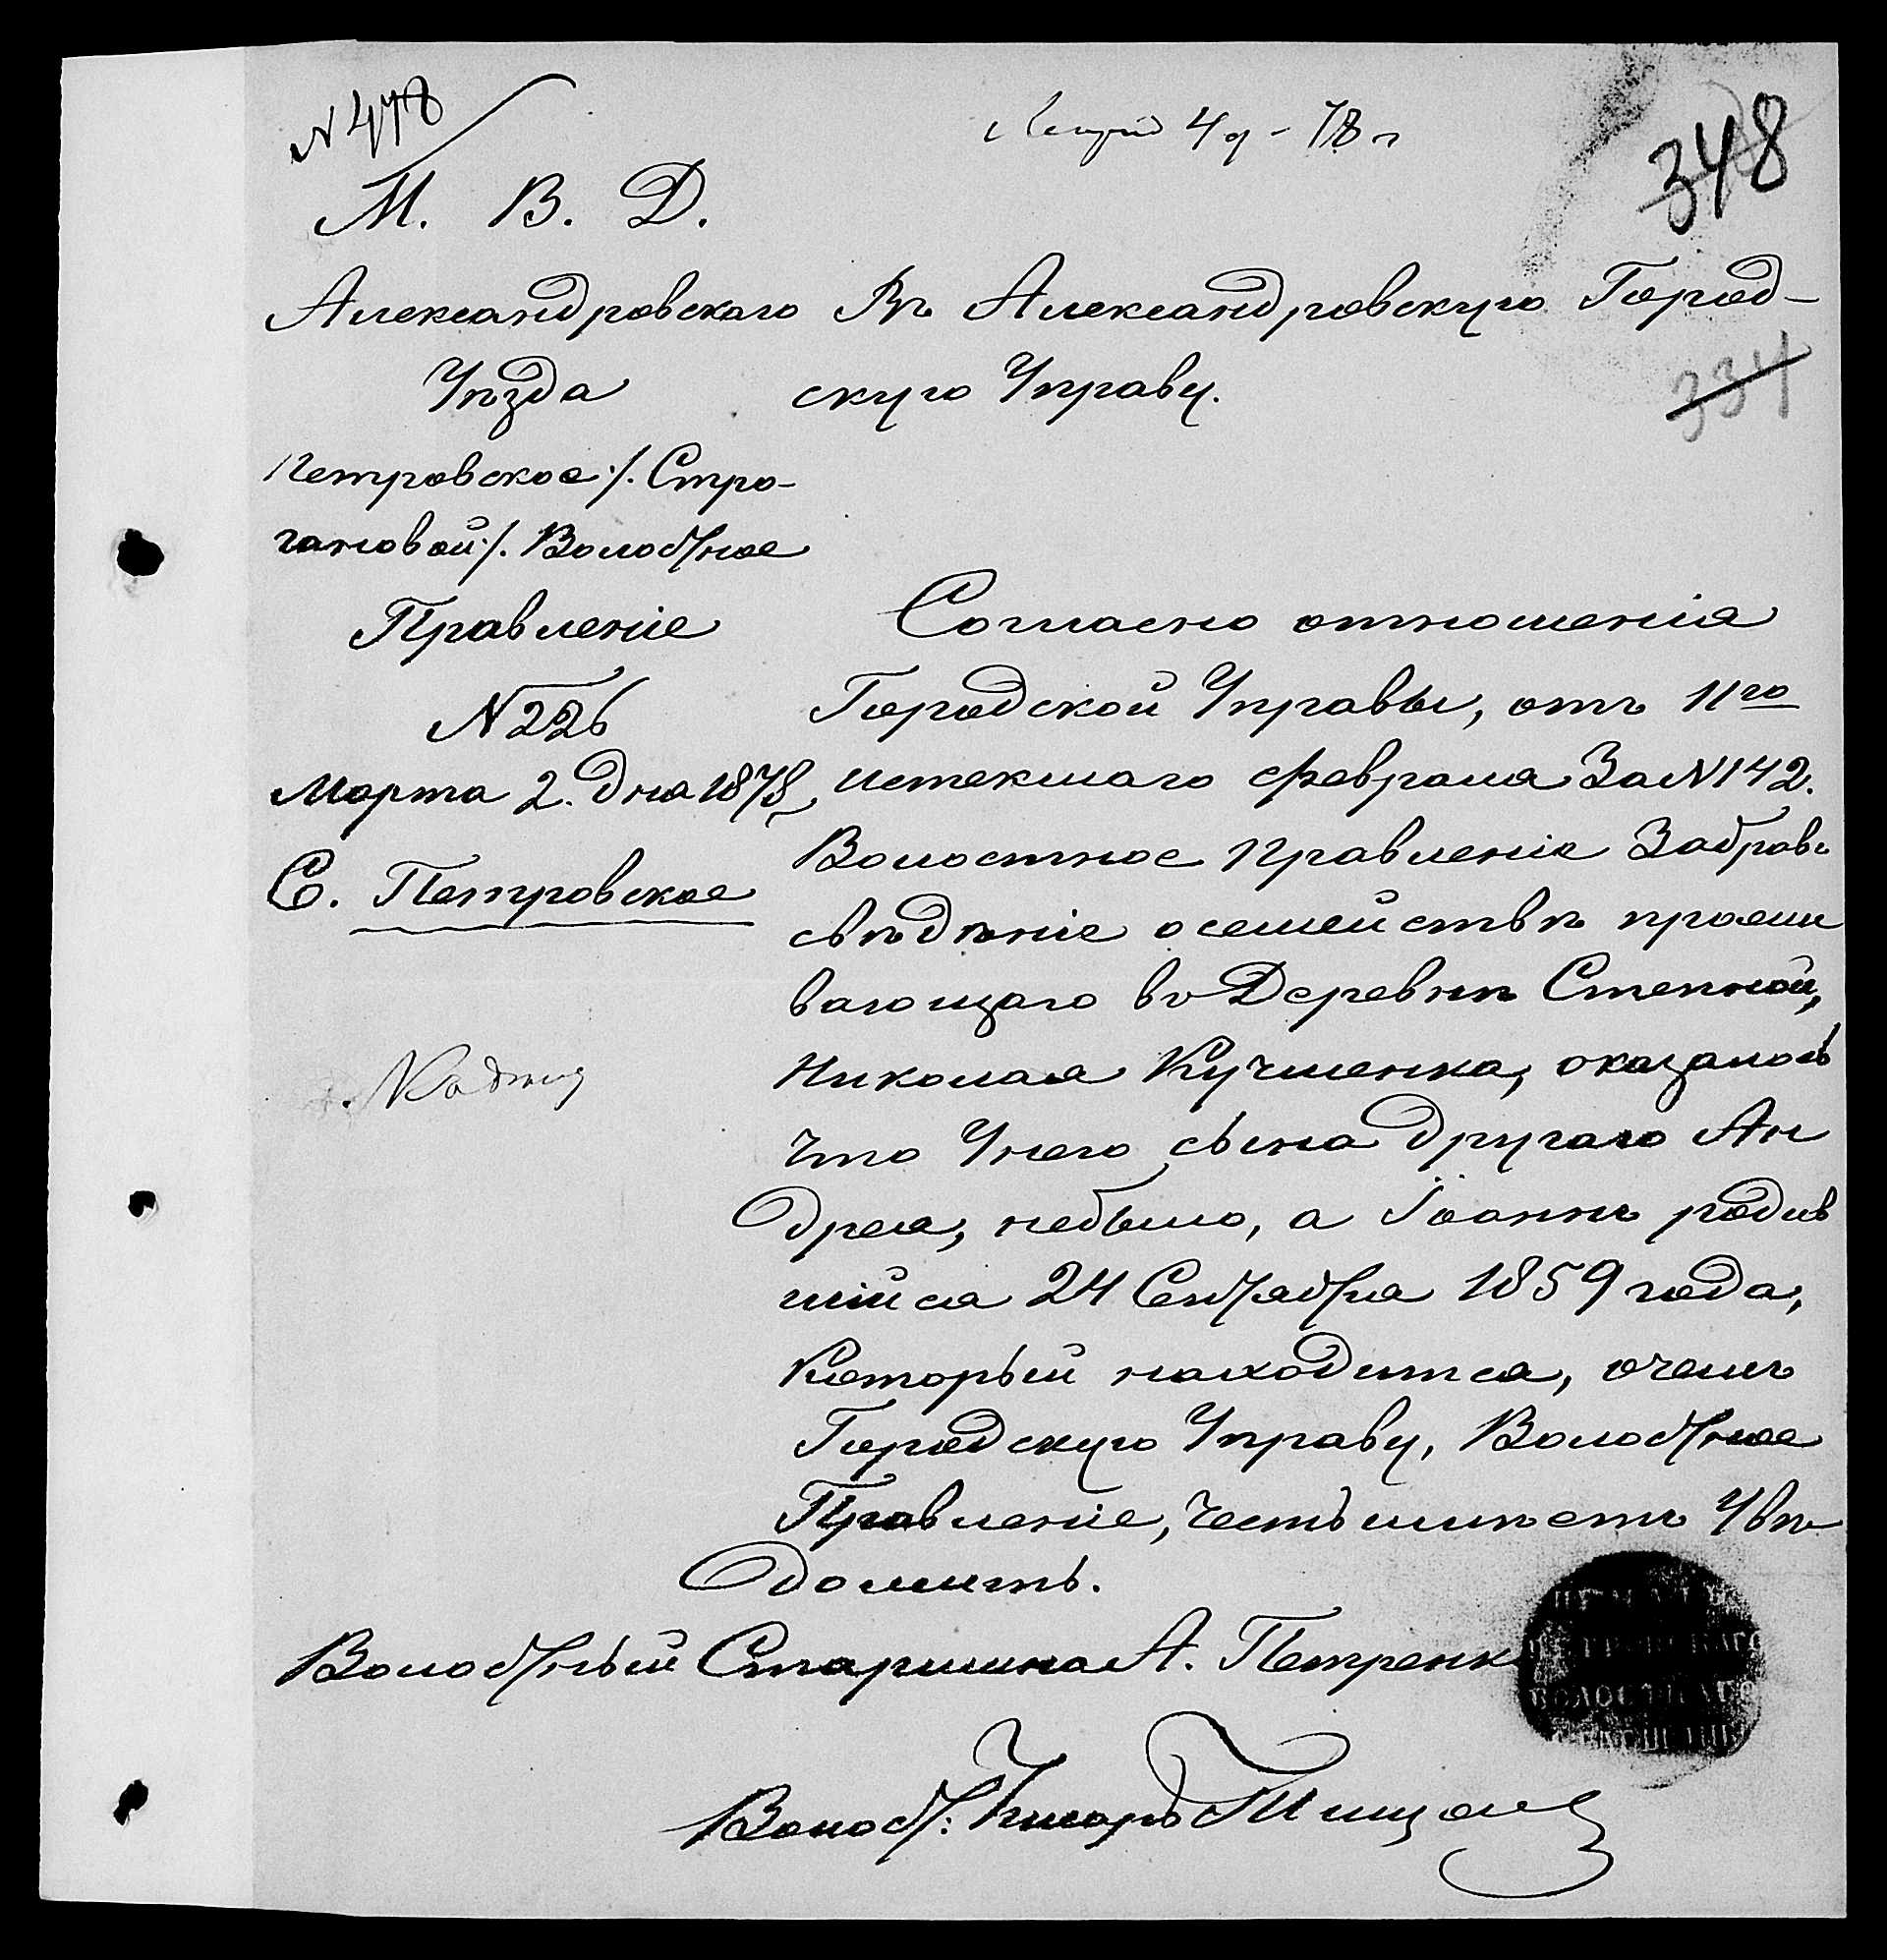 N 478
4 78 г
348
М. В. Д.
Александровскаго
Уѣзда
Петровское /. Стро-
гановой /. Волостное
Правленіе
N 226
Марта 2. дня 1878
С. Петровское
Въ Александровскую Город-
скую Управу.
334
Согласно отношенія
Городской Управы, отъ 11го
истекшаго февраля За N 142.
Волостное правленіе Забравъ
свѣдѣніе о семействѣ прожи
вающаго въ Деревнѣ Степной,
Николая Кучменка, оказалось
что Унего сына другаго Ан
дрея, небыло, а Іоаннъ родив
шійся 24 Сентября 1859 года,
Который находится, очемъ
Городскую Управу, Волостное
Правленіе, честь имѣетъ Увѣ
домить.
Волостный Старшина А. Петренк
Волост: Писарь